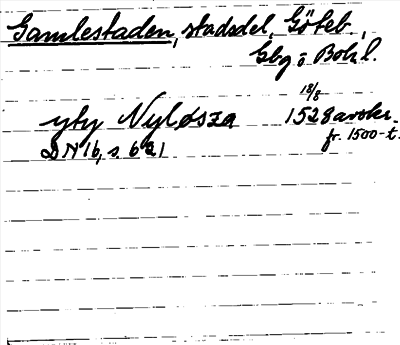 Gamlestaden, stadsdel, Göteb.,
Gbg o Boh l.
18/8
yty Nyløsza 1528 avskr.
fr. 1500-t.
DN 16, s. 621